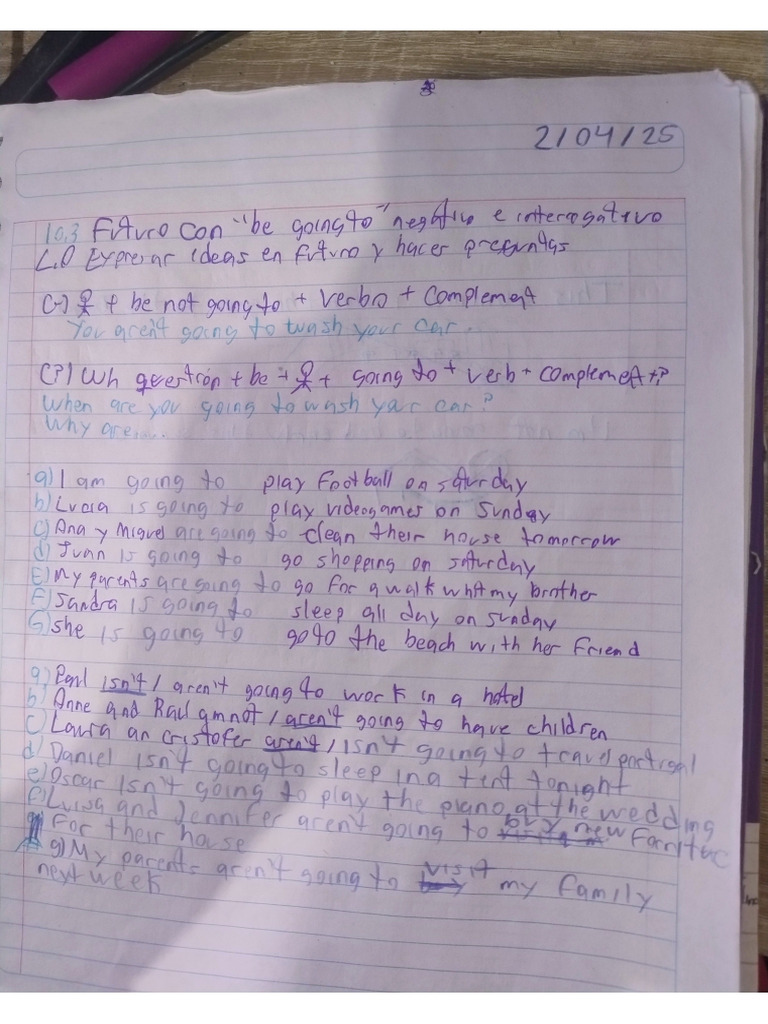 2/04/25
10.3 Futuro con "be going to" negativo e interrogativo
L.O Expresar ideas en futuro y hacer preguntas
(-) + be not going to + verbo + complement
You aren't going to wash your car.
(?) Wh question + be + + going to + verb + complement + ?
When are you going to wash your car?
Why are....
a) I am going to play football on saturday
b) Lucia is going to play videogames on Sunday
c) Ana y Miguel are going to clean their house tomorrow
d) Juan is going to go shopping on saturday
E) My parents are going to go for a walk whit my brother
F) Sandra is going to sleep all day on sunday
G) she is going to go to the beach with her friend
a) Paul isn't / aren't going to work in a hotel
b) Anne and Raul am not / aren't going to have children
c) Laura an cristofer aren't / isn't going to travel portugal
d) Daniel isn't going to sleep in a tent tonight
e) Oscar isn't going to play the piano at the wedding
f) Luisa and Jennifer aren't going to buy new
For their house
g) My parents aren't going to visit my family
next week